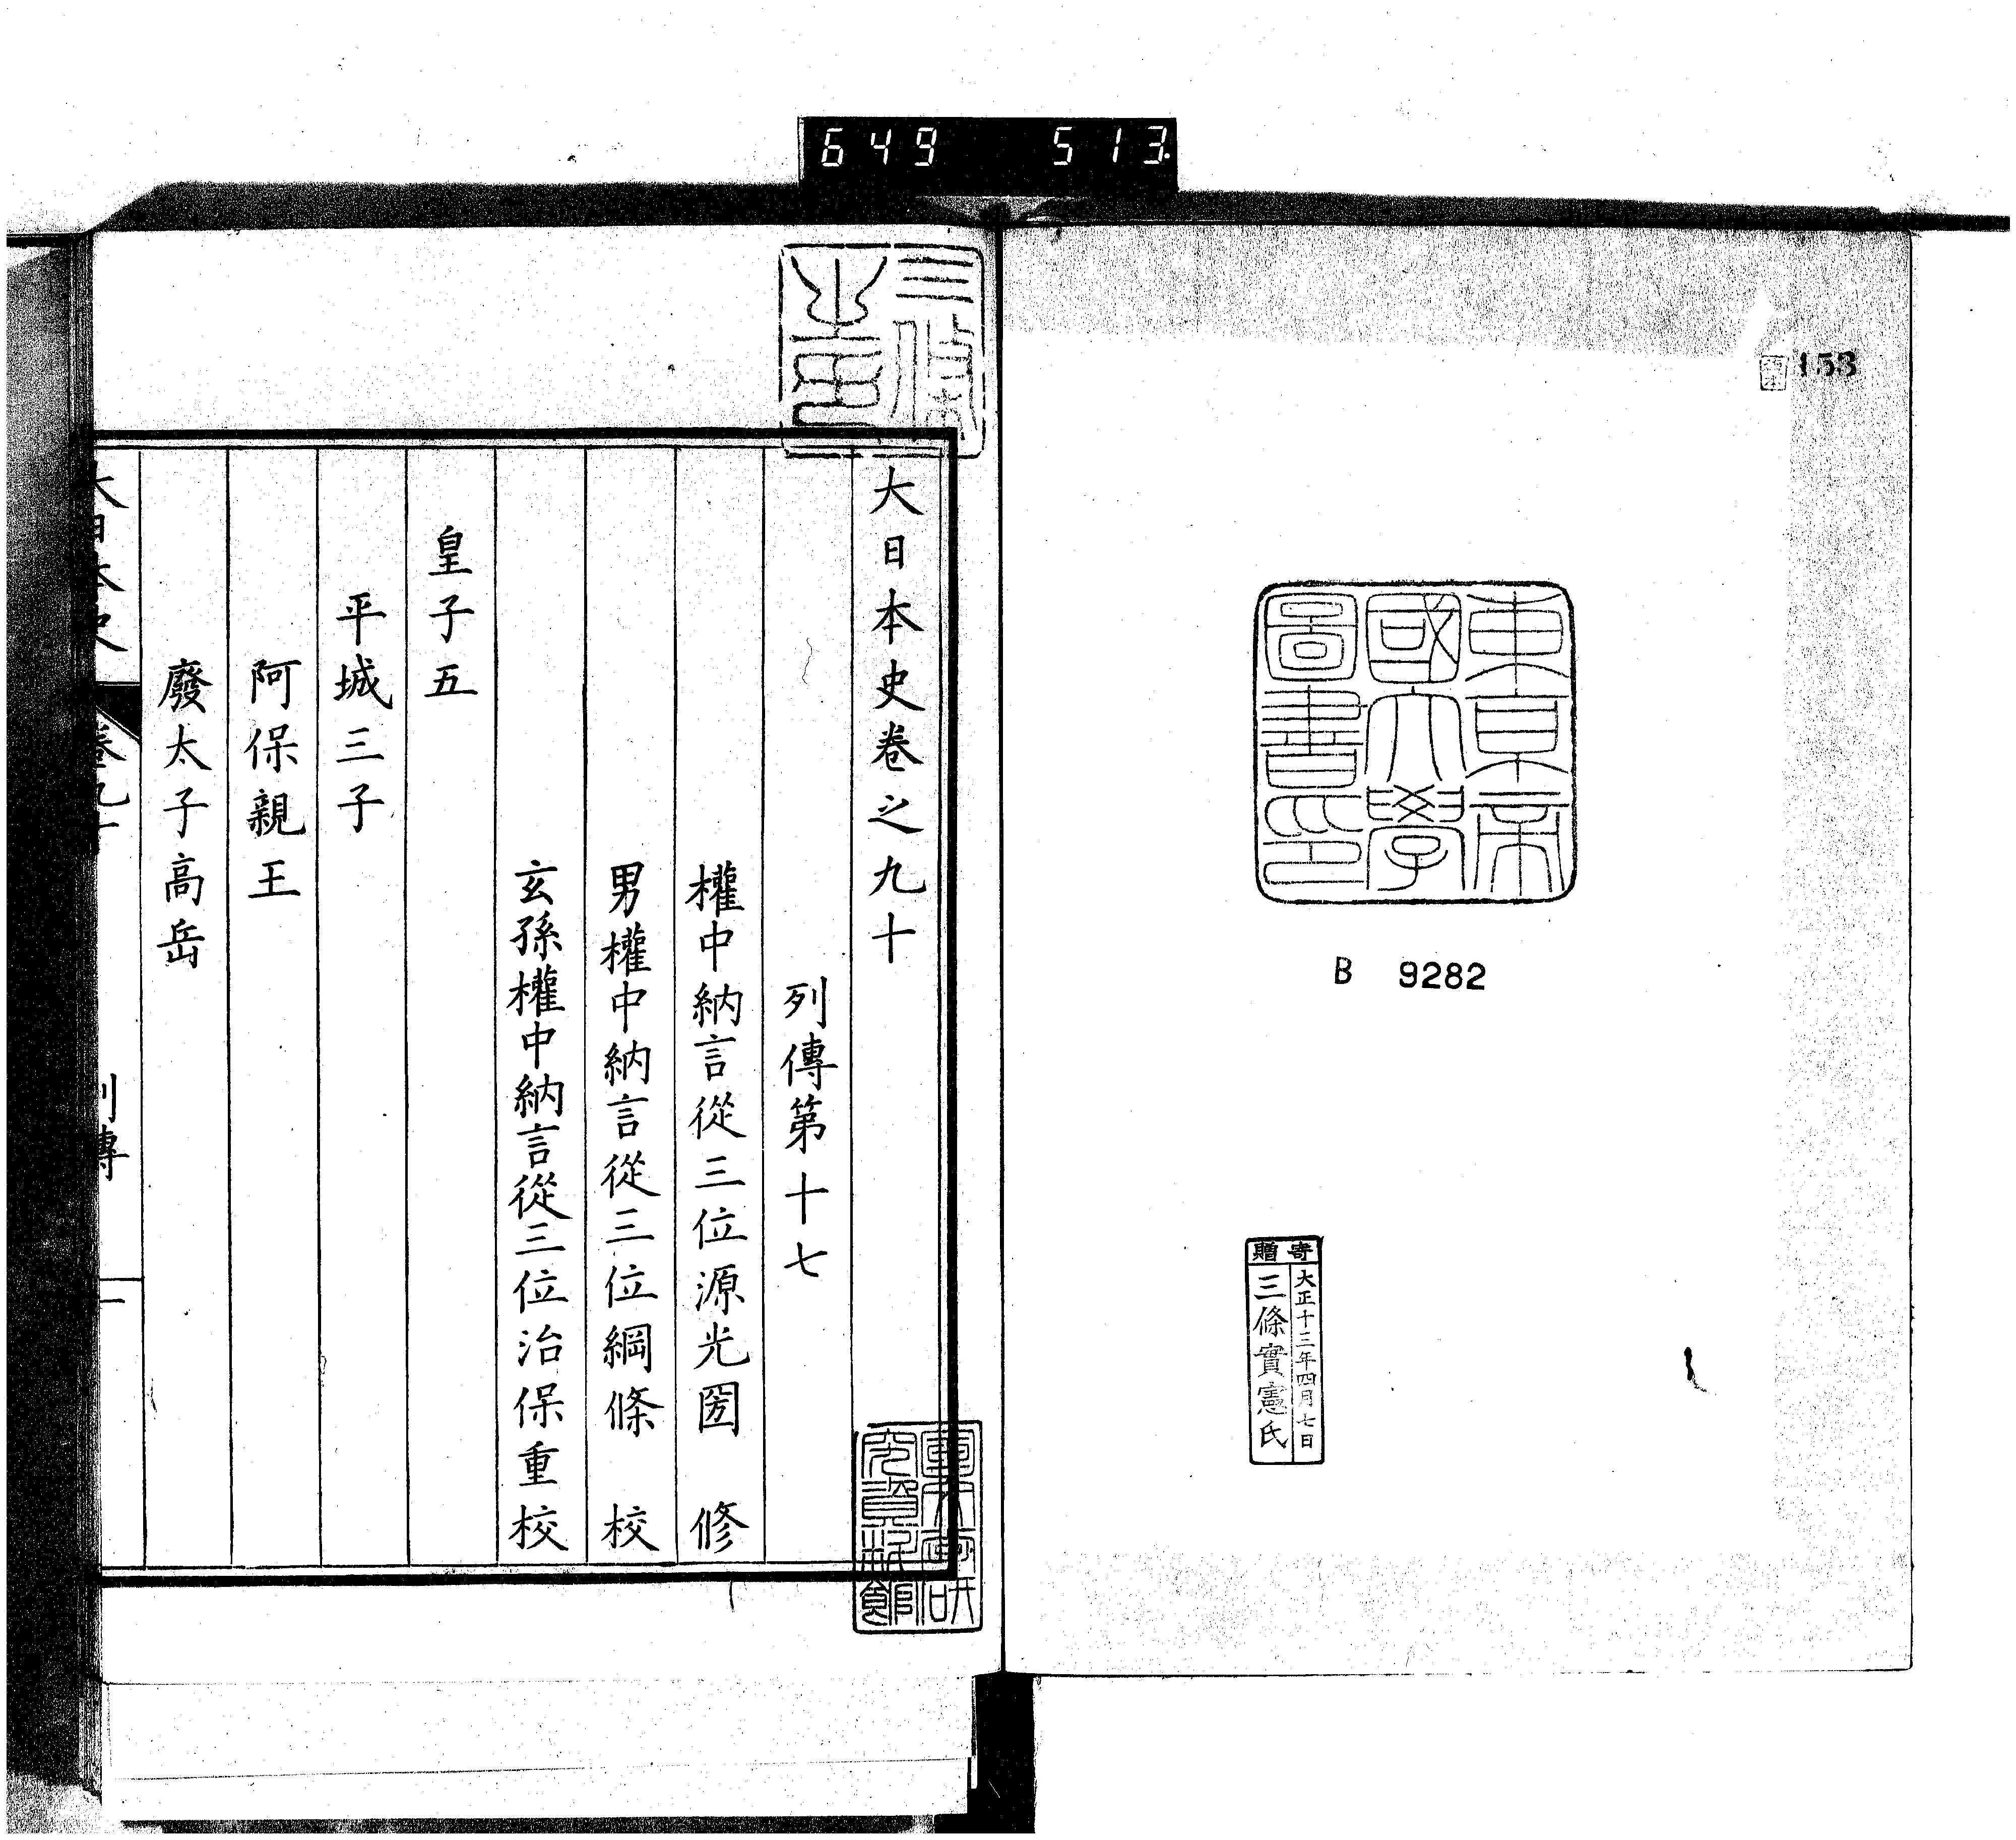 649 513
153
東京帝
國大學
圖書印
B 9282
寄贈
大正十三年四月七日
三條實憲氏
三條
大日本史卷之九十
列傳第十七
權中納言從三位源光圀 修
男權中納言從三位綱條 校
玄孫權中納言從三位治保重校
皇子五
平城三子
阿保親王
廢太子高岳
大日本史 卷九十 列傳 一